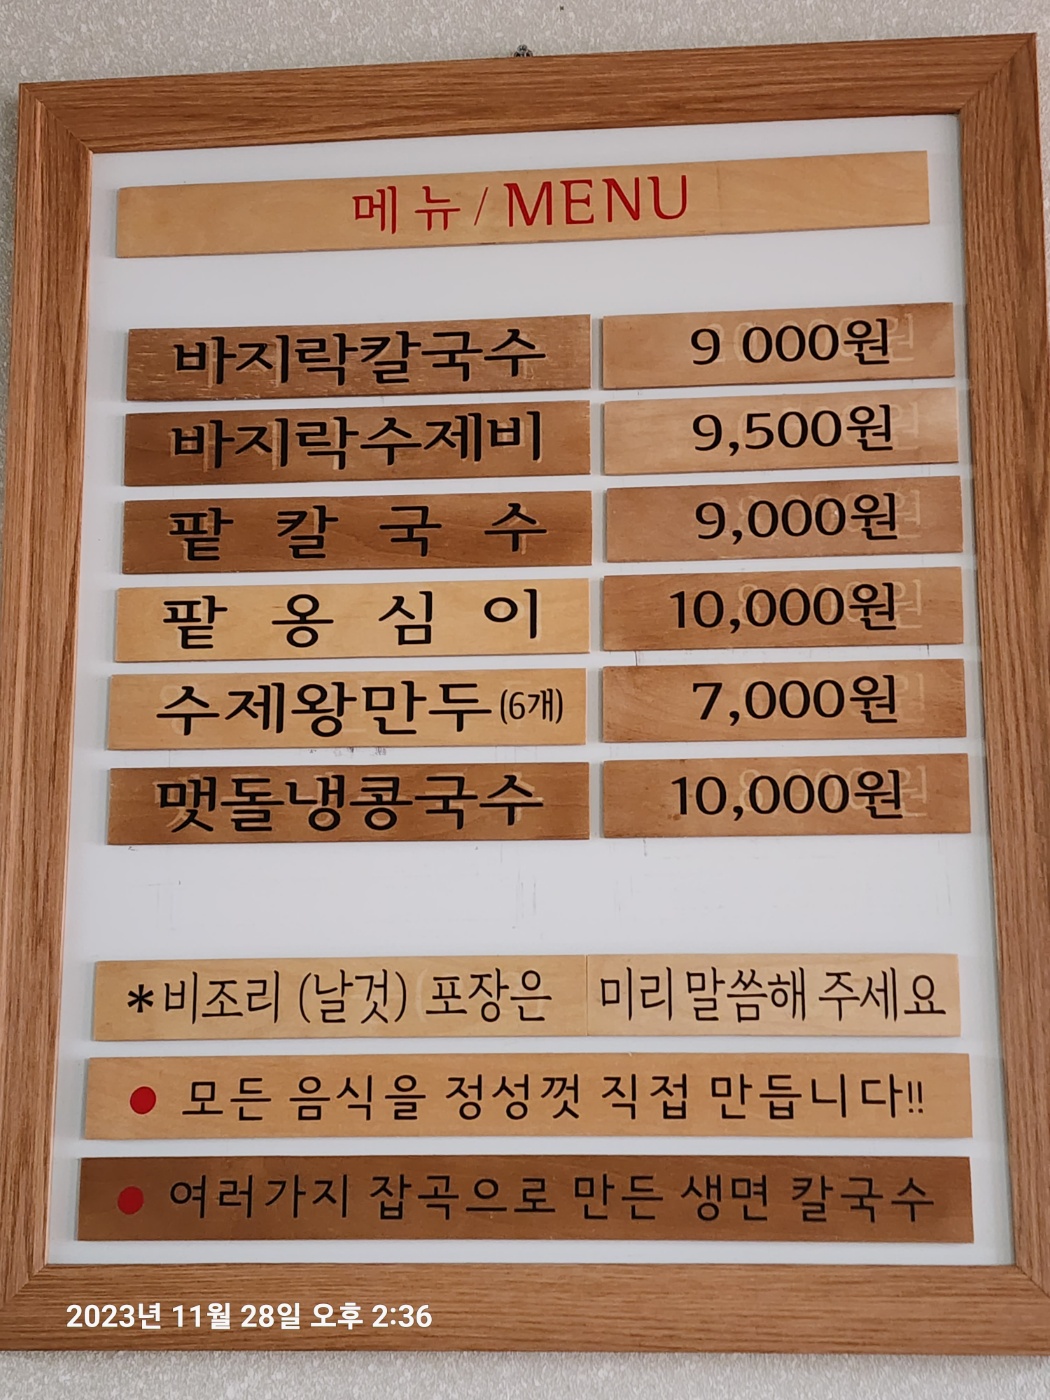 메뉴/MENU
바지락칼국수 9 000원
바지락수제비 9,500원
팥 칼 국 수 9,000원
팥 옹 심 이 10,000원
수제왕만두(6개) 7,000원
맷돌냉콩국수 10,000원
*비조리 (날것) 포장은 미리 말씀해 주세요
● 모든 음식을 정성껏 직접 만듭니다!!
● 여러가지 잡곡으로 만든 생면 칼국수
2023년 11월 28일 오후 2:36